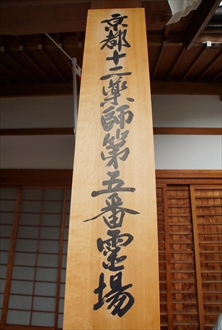 京都十二薬師第五番霊場